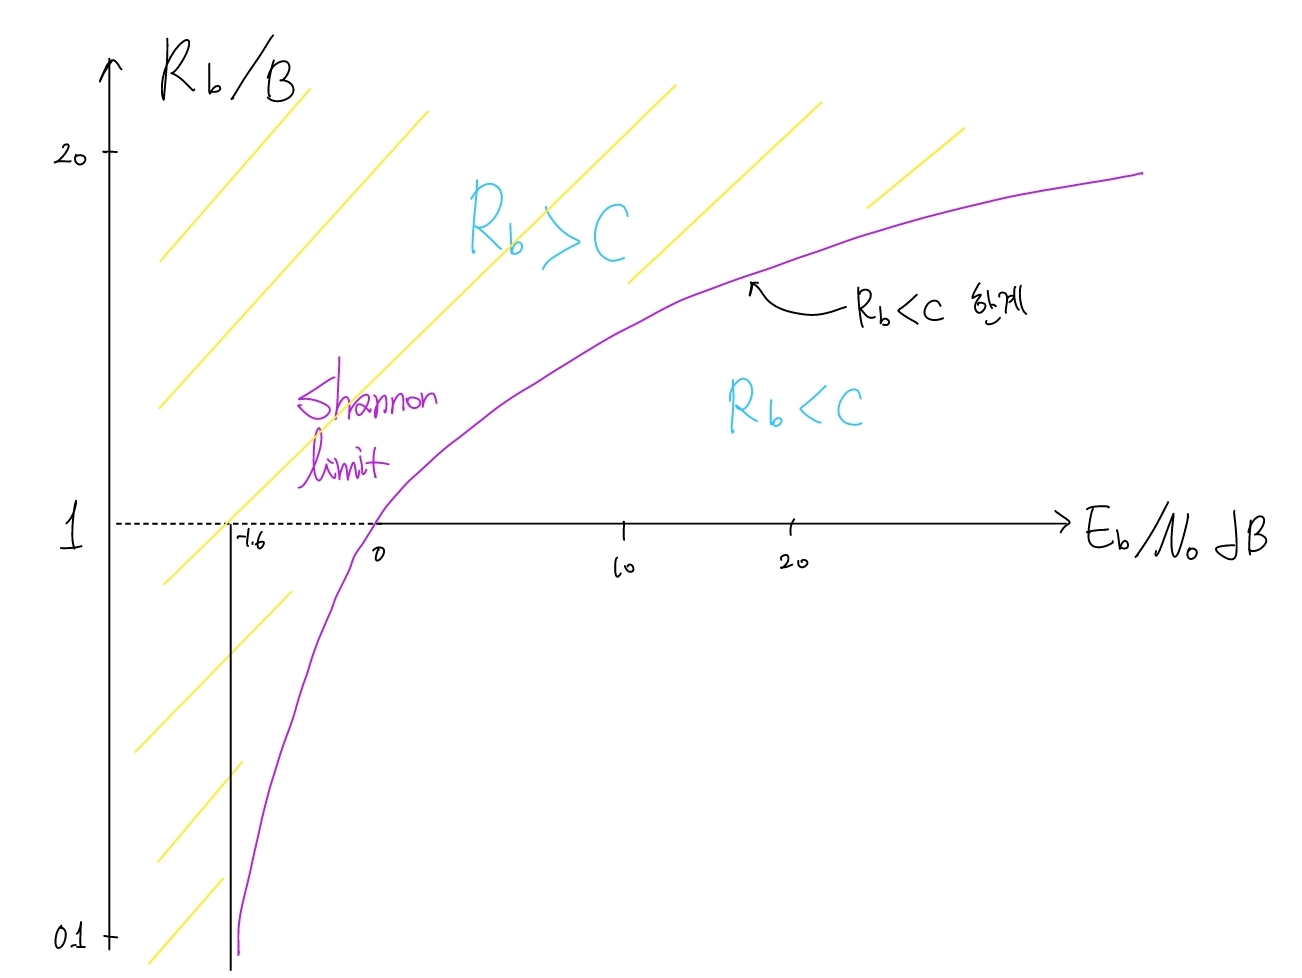 Rb/B
20
Rb>C
Rb<C 한계
Shannon
limit
Rb<C
1
-1.6
0
10
20
Eb/No dB
0.1